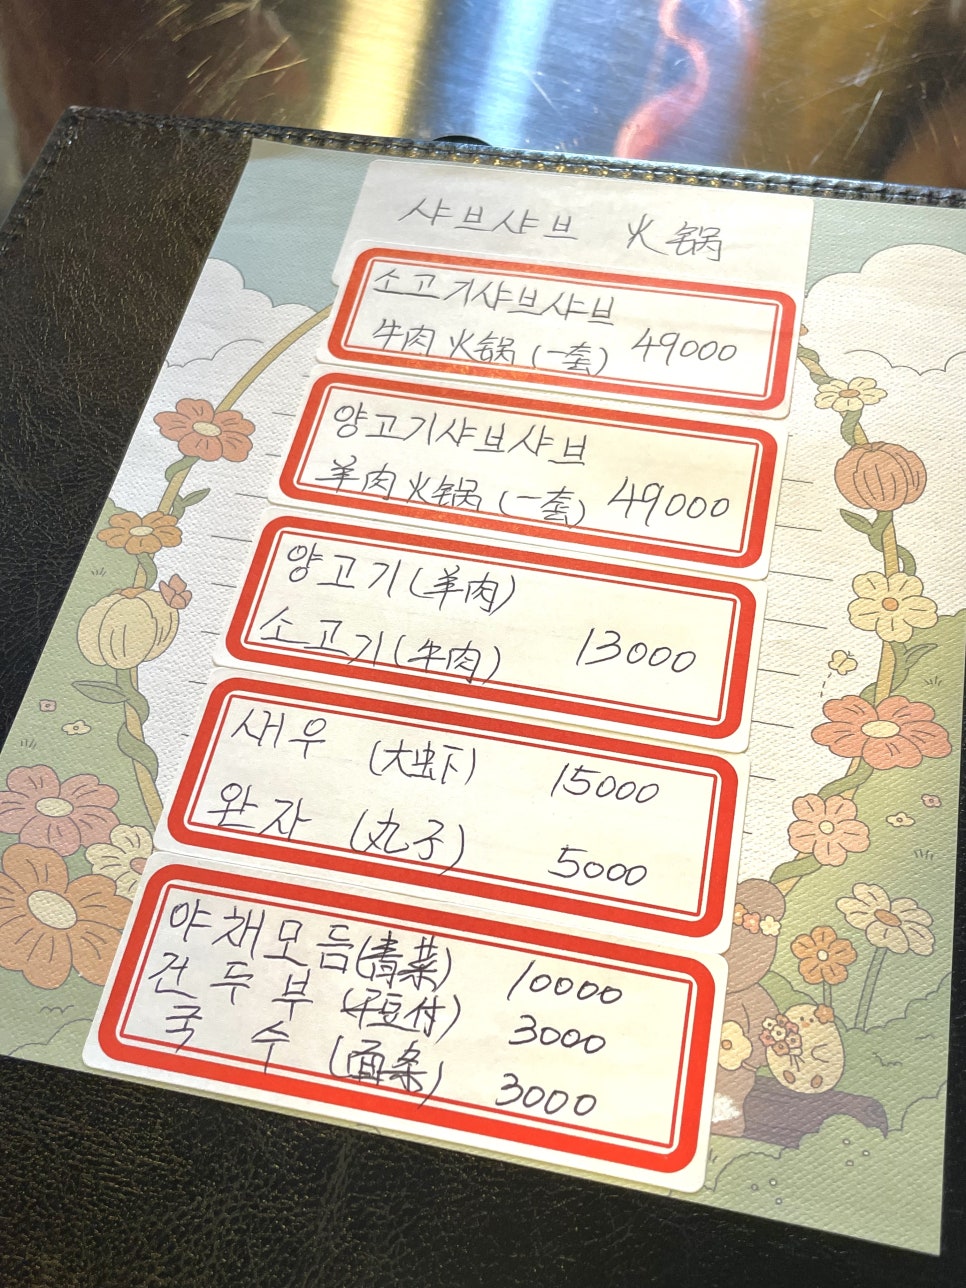 샤브샤브 火锅
소고기샤브샤브
牛肉火锅(一套) 49000
양고기샤브샤브
羊肉火锅(一套) 49000
양고기(羊肉)
소고기(牛肉) 13000
새우 (大虾) 15000
완자 (丸子) 5000
야채모듬(青菜) 10000
건두부 (干豆付) 3000
국수 (面条) 3000